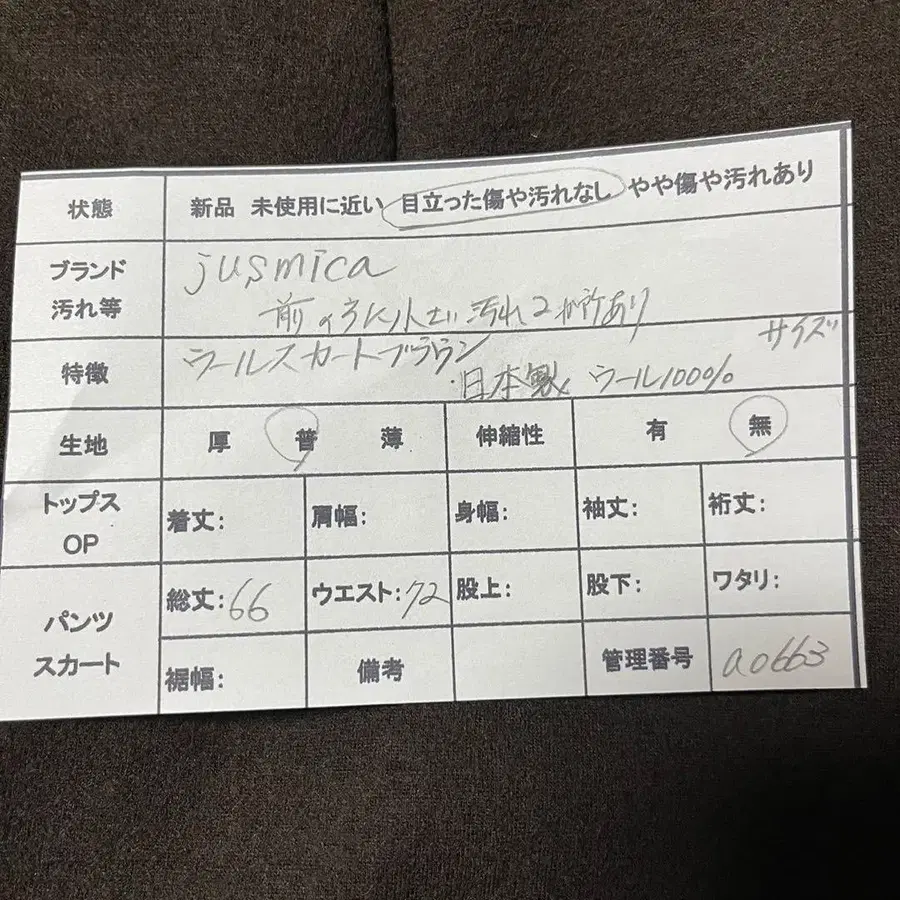 状態 新品 未使用に近い 目立った傷や汚れなし やや傷や汚れあり
ブランド jusmica
汚れ等 前の方に小さい汚れ2か所あり
サイズ
特徴 ウールスカートブラウン
・日本製 ウール100%
生地 厚 普 薄 伸縮性 有 無
トップス
OP 着丈: 肩幅: 身幅: 袖丈: 裄丈:
パンツ
スカート 総丈:66 ウエスト:72 股上: 股下: ワタリ:
裾幅: 備考 管理番号 a0663